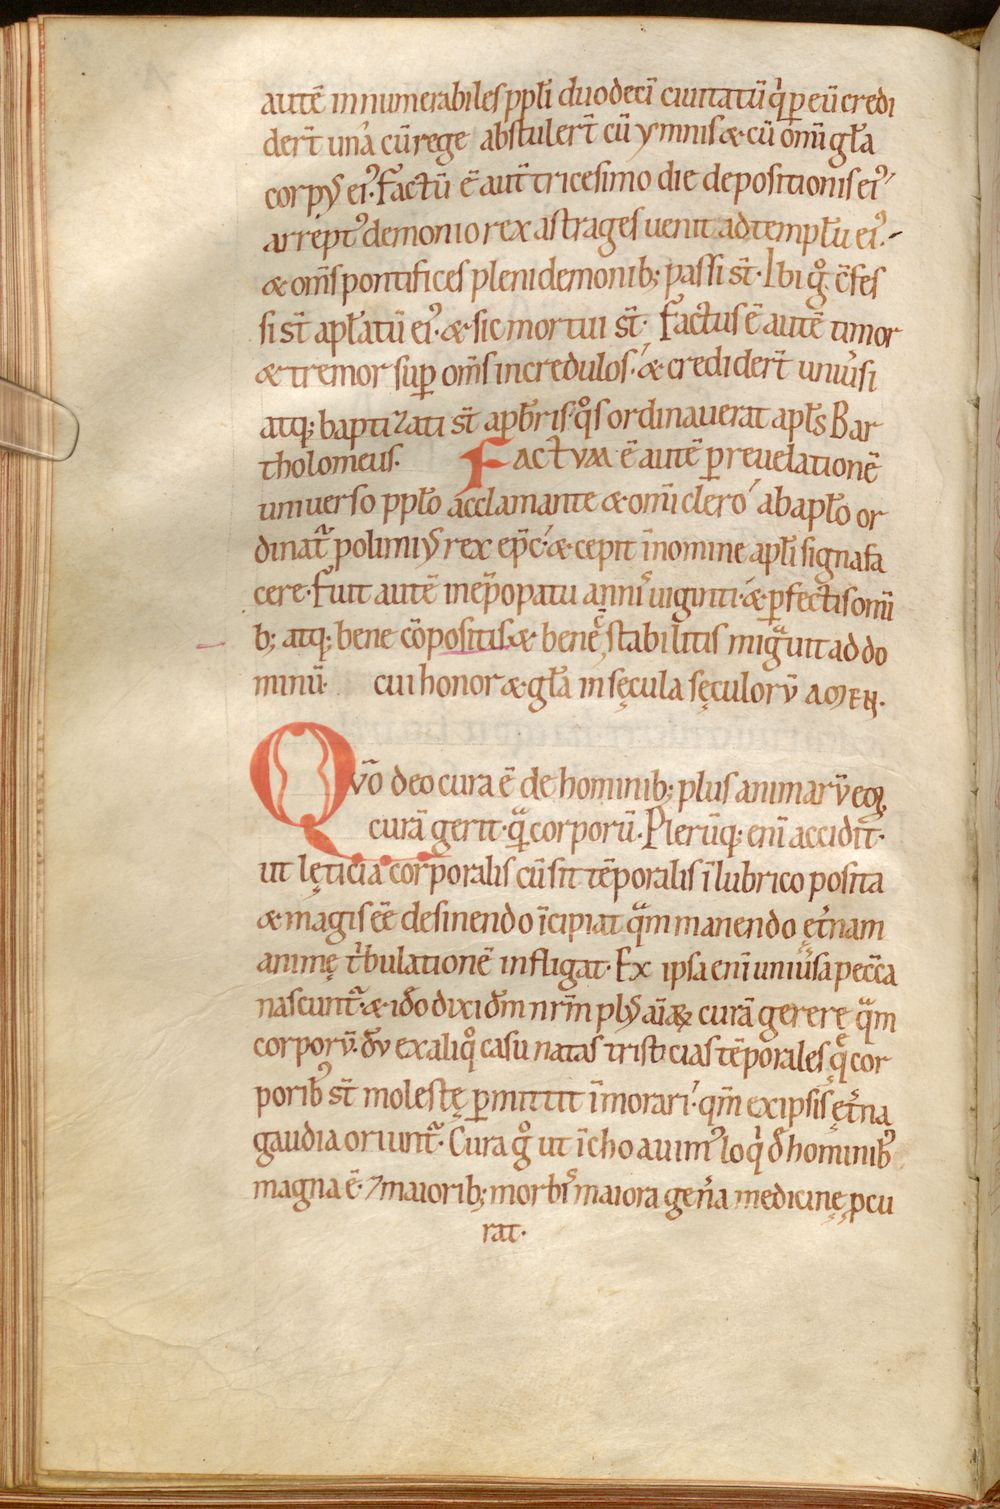 autē innumerabiles ppłi duodecī ciuitatū q̇ p̱ eū credi
der̄t unȧ cū rege abstuler̄t cū ymnis & cū om̄i gła
corpꝰ eiꝰ. Factū ē aut̄ tricesimo die depositionis eiꝰ
arreptꝰ demonio rex astrages uenit ad templū eiꝰ.
& om̄s pontifices pleni demonib; passi st̄. Ibi g̊ c̄fes
si st̄ apłatū eiꝰ. & sic mortui st̄. Factus ē autē timor
& tremor sup̱ om̄s incredulos. & credider̄t uniu̓si
atq; baptizati st̄ a pb̄ris. q̊s ordinauerat apłs Bar
tholomeus. Factum ē autē p̱ reuelationē
uniuerso ppło acclamante & om̄i clero ab apło or
dinat᷑ polimiꝰ rex ep̄c. & cepit īnomine apłi signa fa
cere. Fuit autē in ep̄opatu annis uiginti. & p̱fectis om̄i
b; atq; bene cōpositis & bene stabilitis migͣuit ad do
minū cui honor & gła in sęcula sęculorū amen.
Qūo deo cura ē de hominib; plus animarū eoꝝ
curā gerit. qͣ corporū. Plerūq; eni accidit.
ut lęticia corporalis cū sit tēporalis ī lubrico posita
& magis eē desinendo īcipiat qͣm manendo ęt̓nam
animę tͥbulationē infligat. Ex ipsa eni uniu̓sa pecc̄a
nascunt᷑. & iđo dixi dm̄ nrm̄ plꝰ aīaꝝ curā gerere qͣm
corporū. dū ex aliq̊ casu natas tristicias tēporales q̨ cor
poribꝰ st̄ molestę p̱mittit īmorari. qm̄ ex ipsis ęt̓na
gaudia oriunt᷑. Cura g̊ ut īchoauimꝰ loq̇ đ hominibꝰ
magna ē. 7 maiorib; morbis maiora gen̓a medicinę p̱cu
rat.